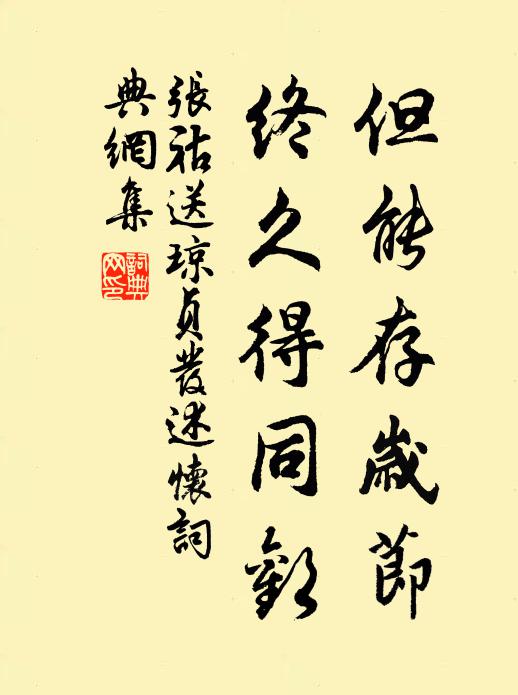 但能存歲節
終久得同歡
張祜送琼貞發述懷詞
典網集
詞典網印